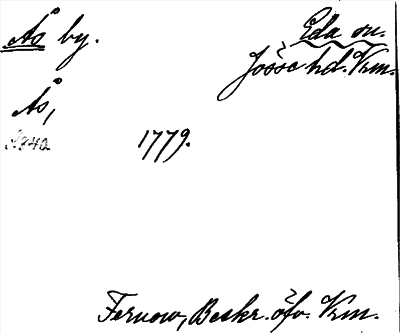 Ås by. Eda sn.
Jösse hd. Vrm.
Ås,
1779.
Fernow, Beskr. öfv. Vrm.